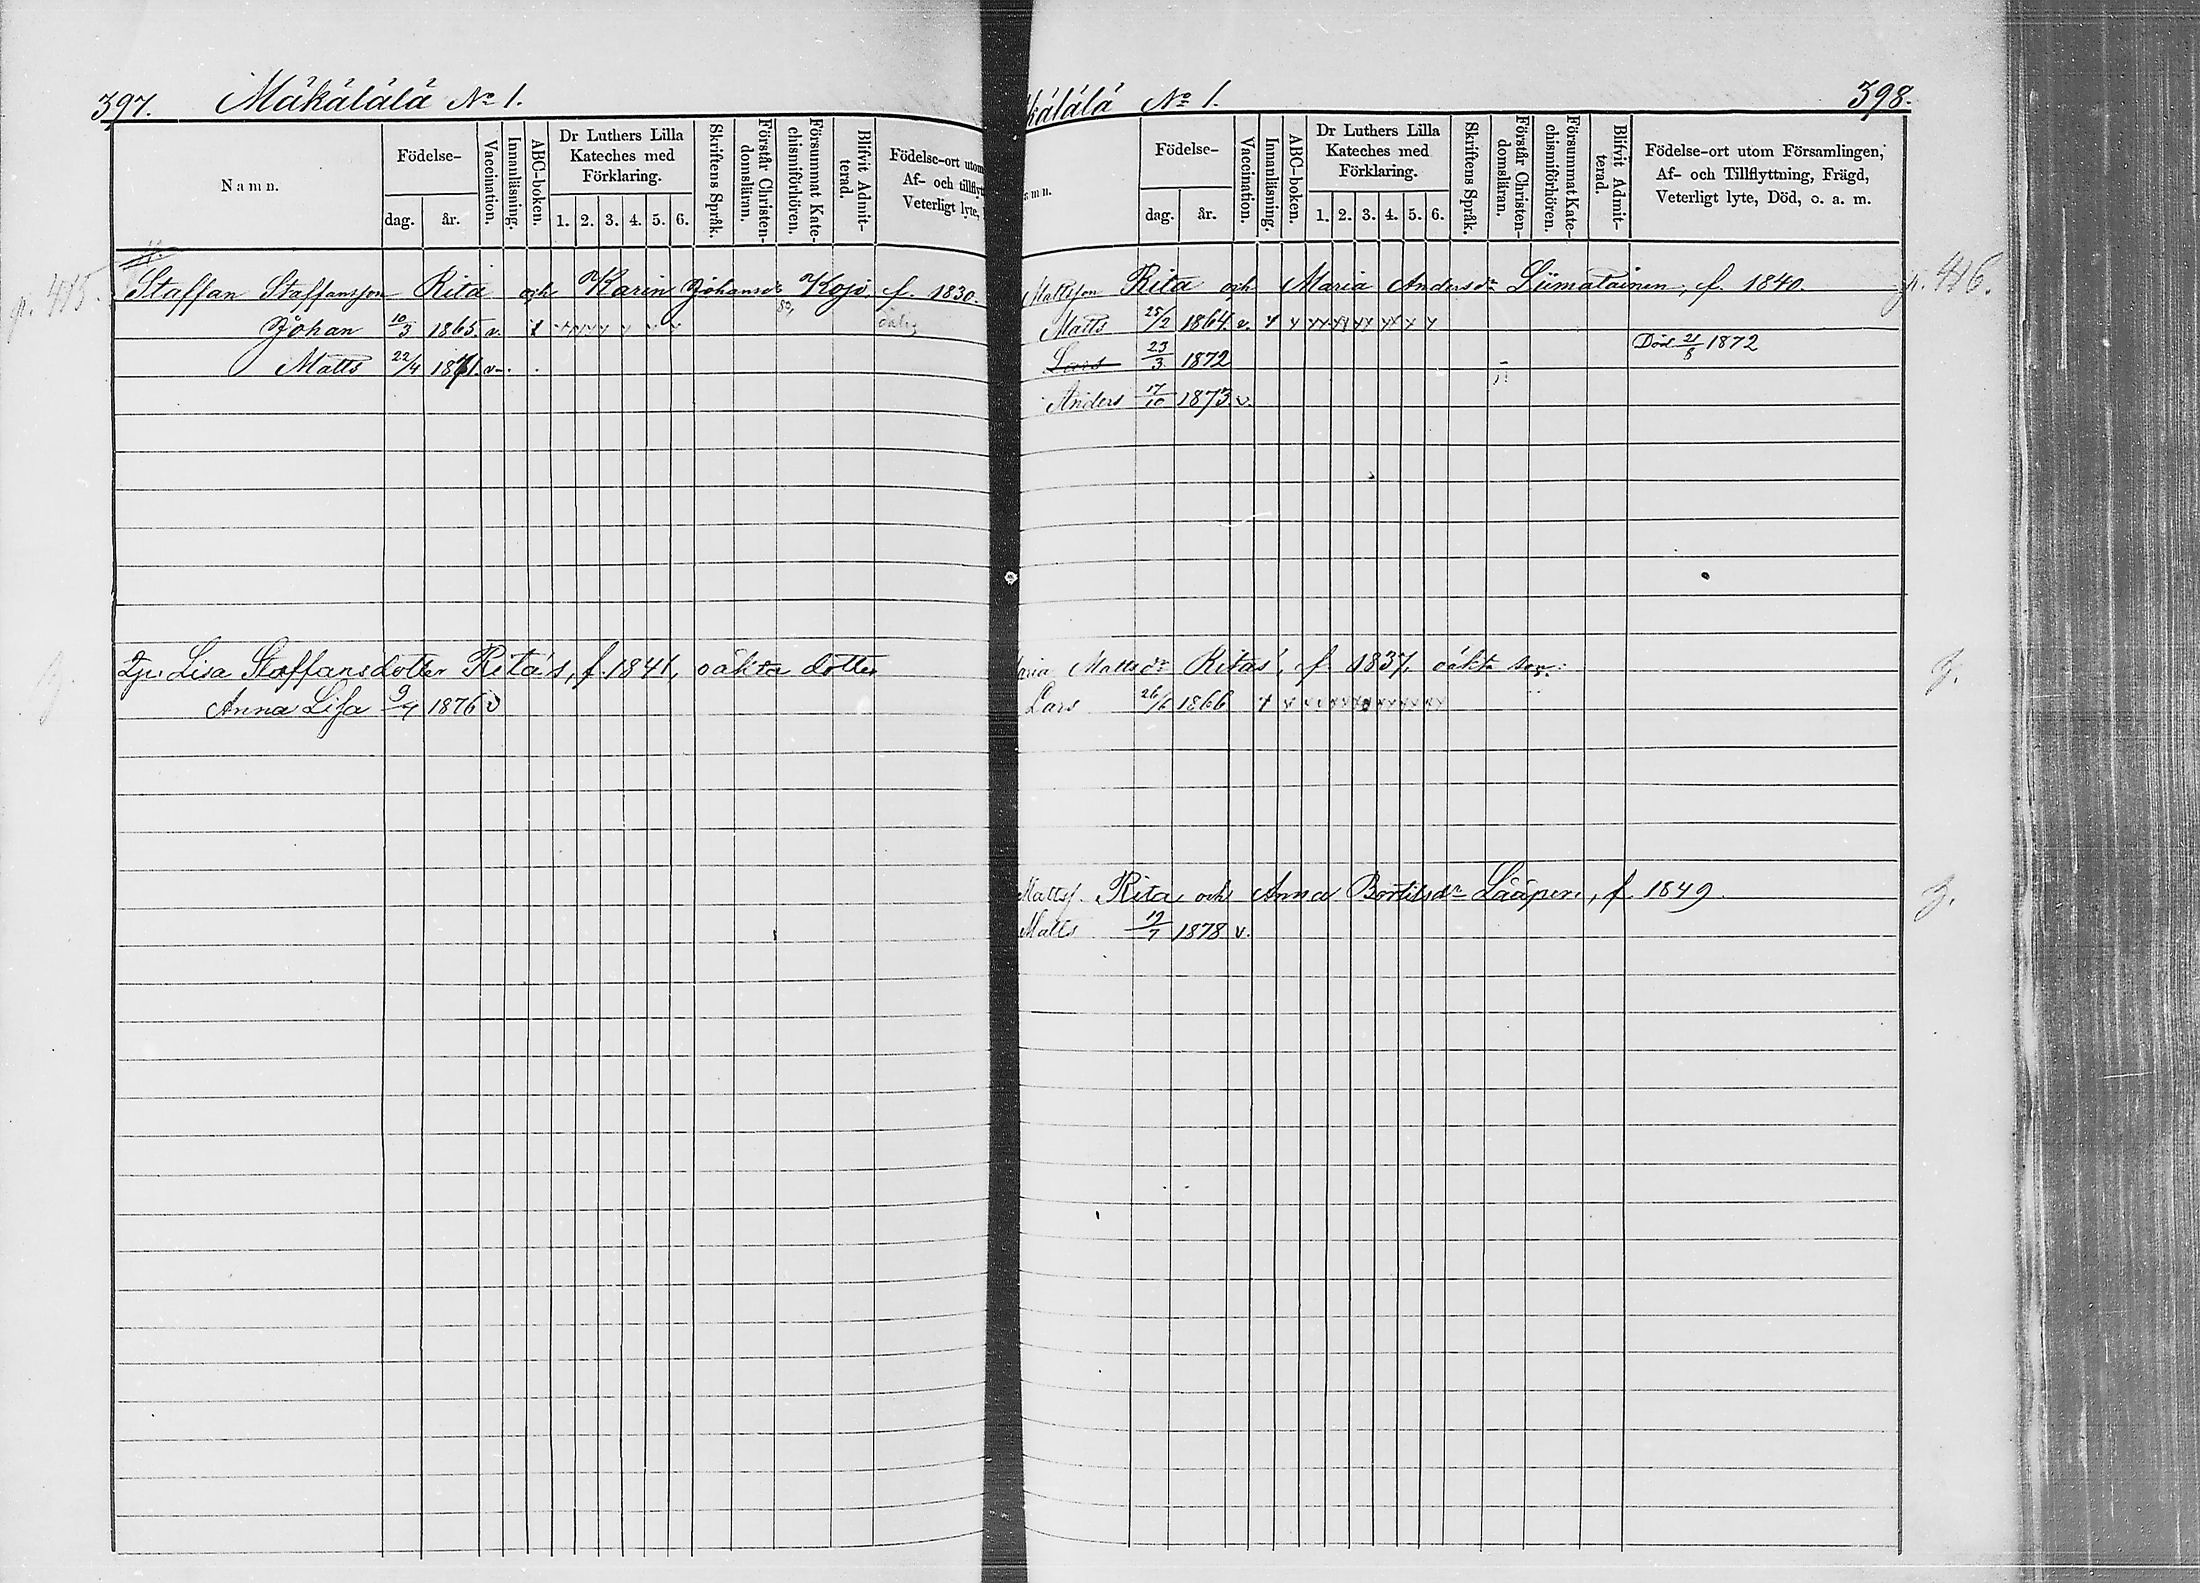 397. Mäkälälä No 1.
Namn.
Födelse-
dag. år.
Vaccination.
Innanläsning.
ABC-boken.
Dr Luthers Lilla Kateches med Förklaring.
1. 2. 3. 4. 5. 6.
Skriftens Språk.
Förstår Christendomsläran.
Försummat Katechismiförhören.
Blifvit Admitterad.
Födelse-ort utom
Af- och tillflytt
Veterligt lyte,
p. 415.
Staffan Staffansson Rita och Karin Johansdr Kojo, f. 1830.
Johan 10/3 1865. v.
Matts 22/4 1871. v.
Lisa Staffansdotter Rita's, f. 1841, oäkta dotter
Anna Lisa 9/4 1876 v
kälälä No 1. 398.
mn.
Födelse-
dag. år.
Vaccination.
Innanläsning.
ABC-boken.
Dr Luthers Lilla Kateches med Förklaring.
1. 2. 3. 4. 5. 6.
Skriftens Språk.
Förstår Christendomsläran.
Försummat Katechismiförhören.
Blifvit Admitterad.
Födelse-ort utom Församlingen,
Af- och Tillflyttning, Frägd,
Veterligt lyte, Död, o. a. m.
Mattsson Rita och Maria Andersdr Liimatainen, f. 1840. p. 416.
Matts 25/2 1864 v.
Lars 23/3 1872 Död 21/8 1872
Anders 17/10 1873 v.
aria Mattsdr Ritas', f. 1837, oäkta son:
Lars 26/6 1866
Mattss. Rita och Anna Bertilsdr Lääperi, f. 1849.
Matts 19/7 1878 v.